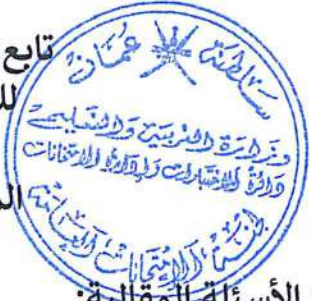 تابع
سلطنة عمان
وزارة التربية والتعليم
دائرة الاختبارات وإدارة الامتحانات
لجنة الامتحانات
الأسئلة المقالية: